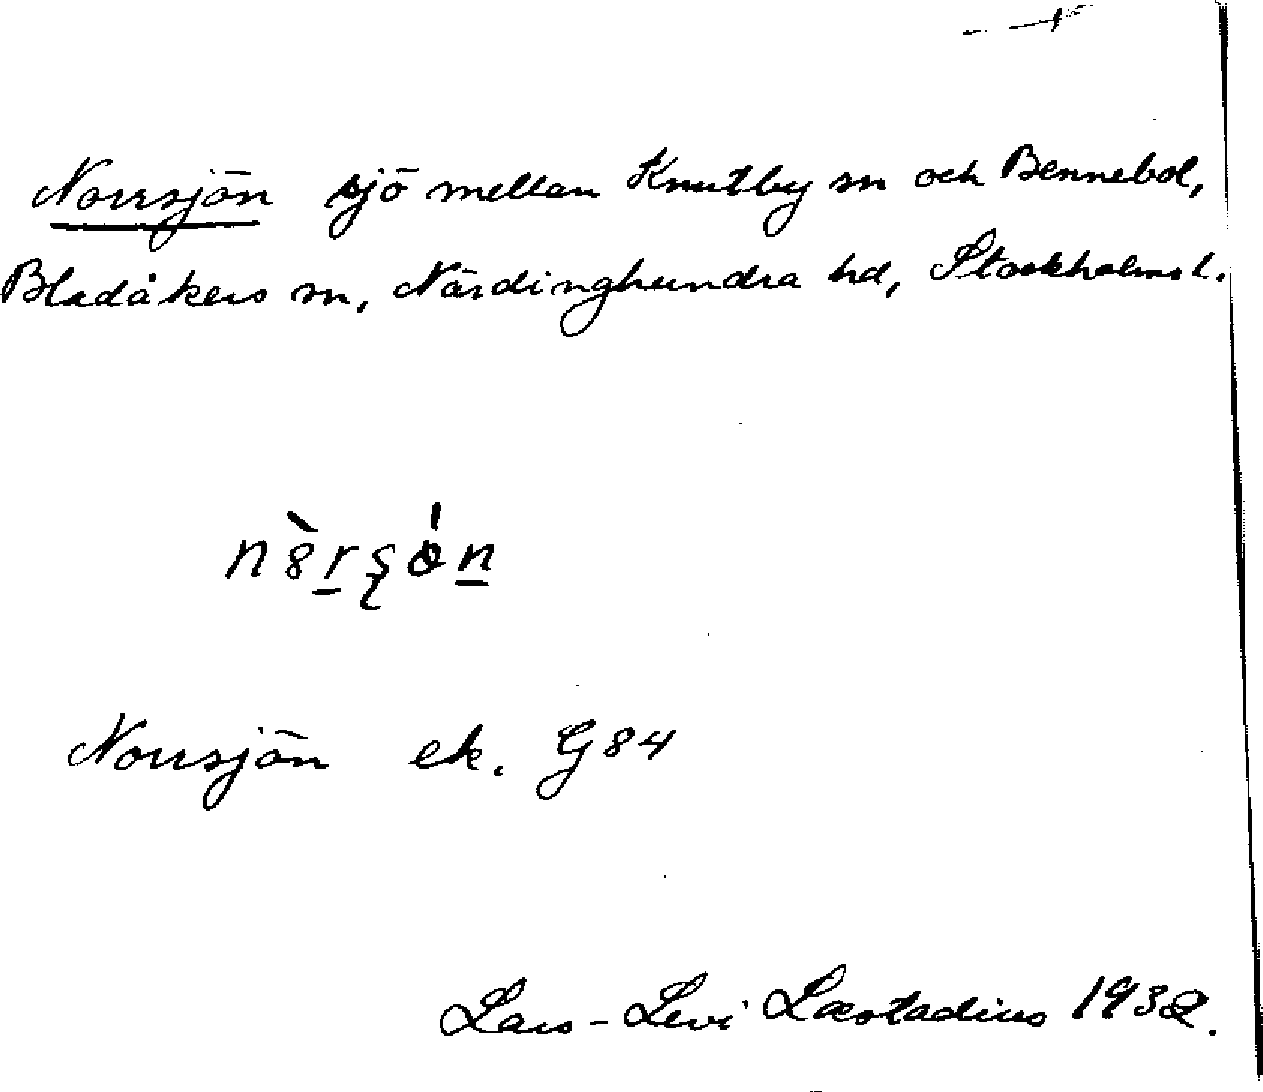 Norrsjön sjö mellan Knutby sn och Bennebol,
Bladåkers sn, Närdinghundra hd, Stockholms l.
Norrsjön ek. G84
Lars-Levi Læstadius 1932.